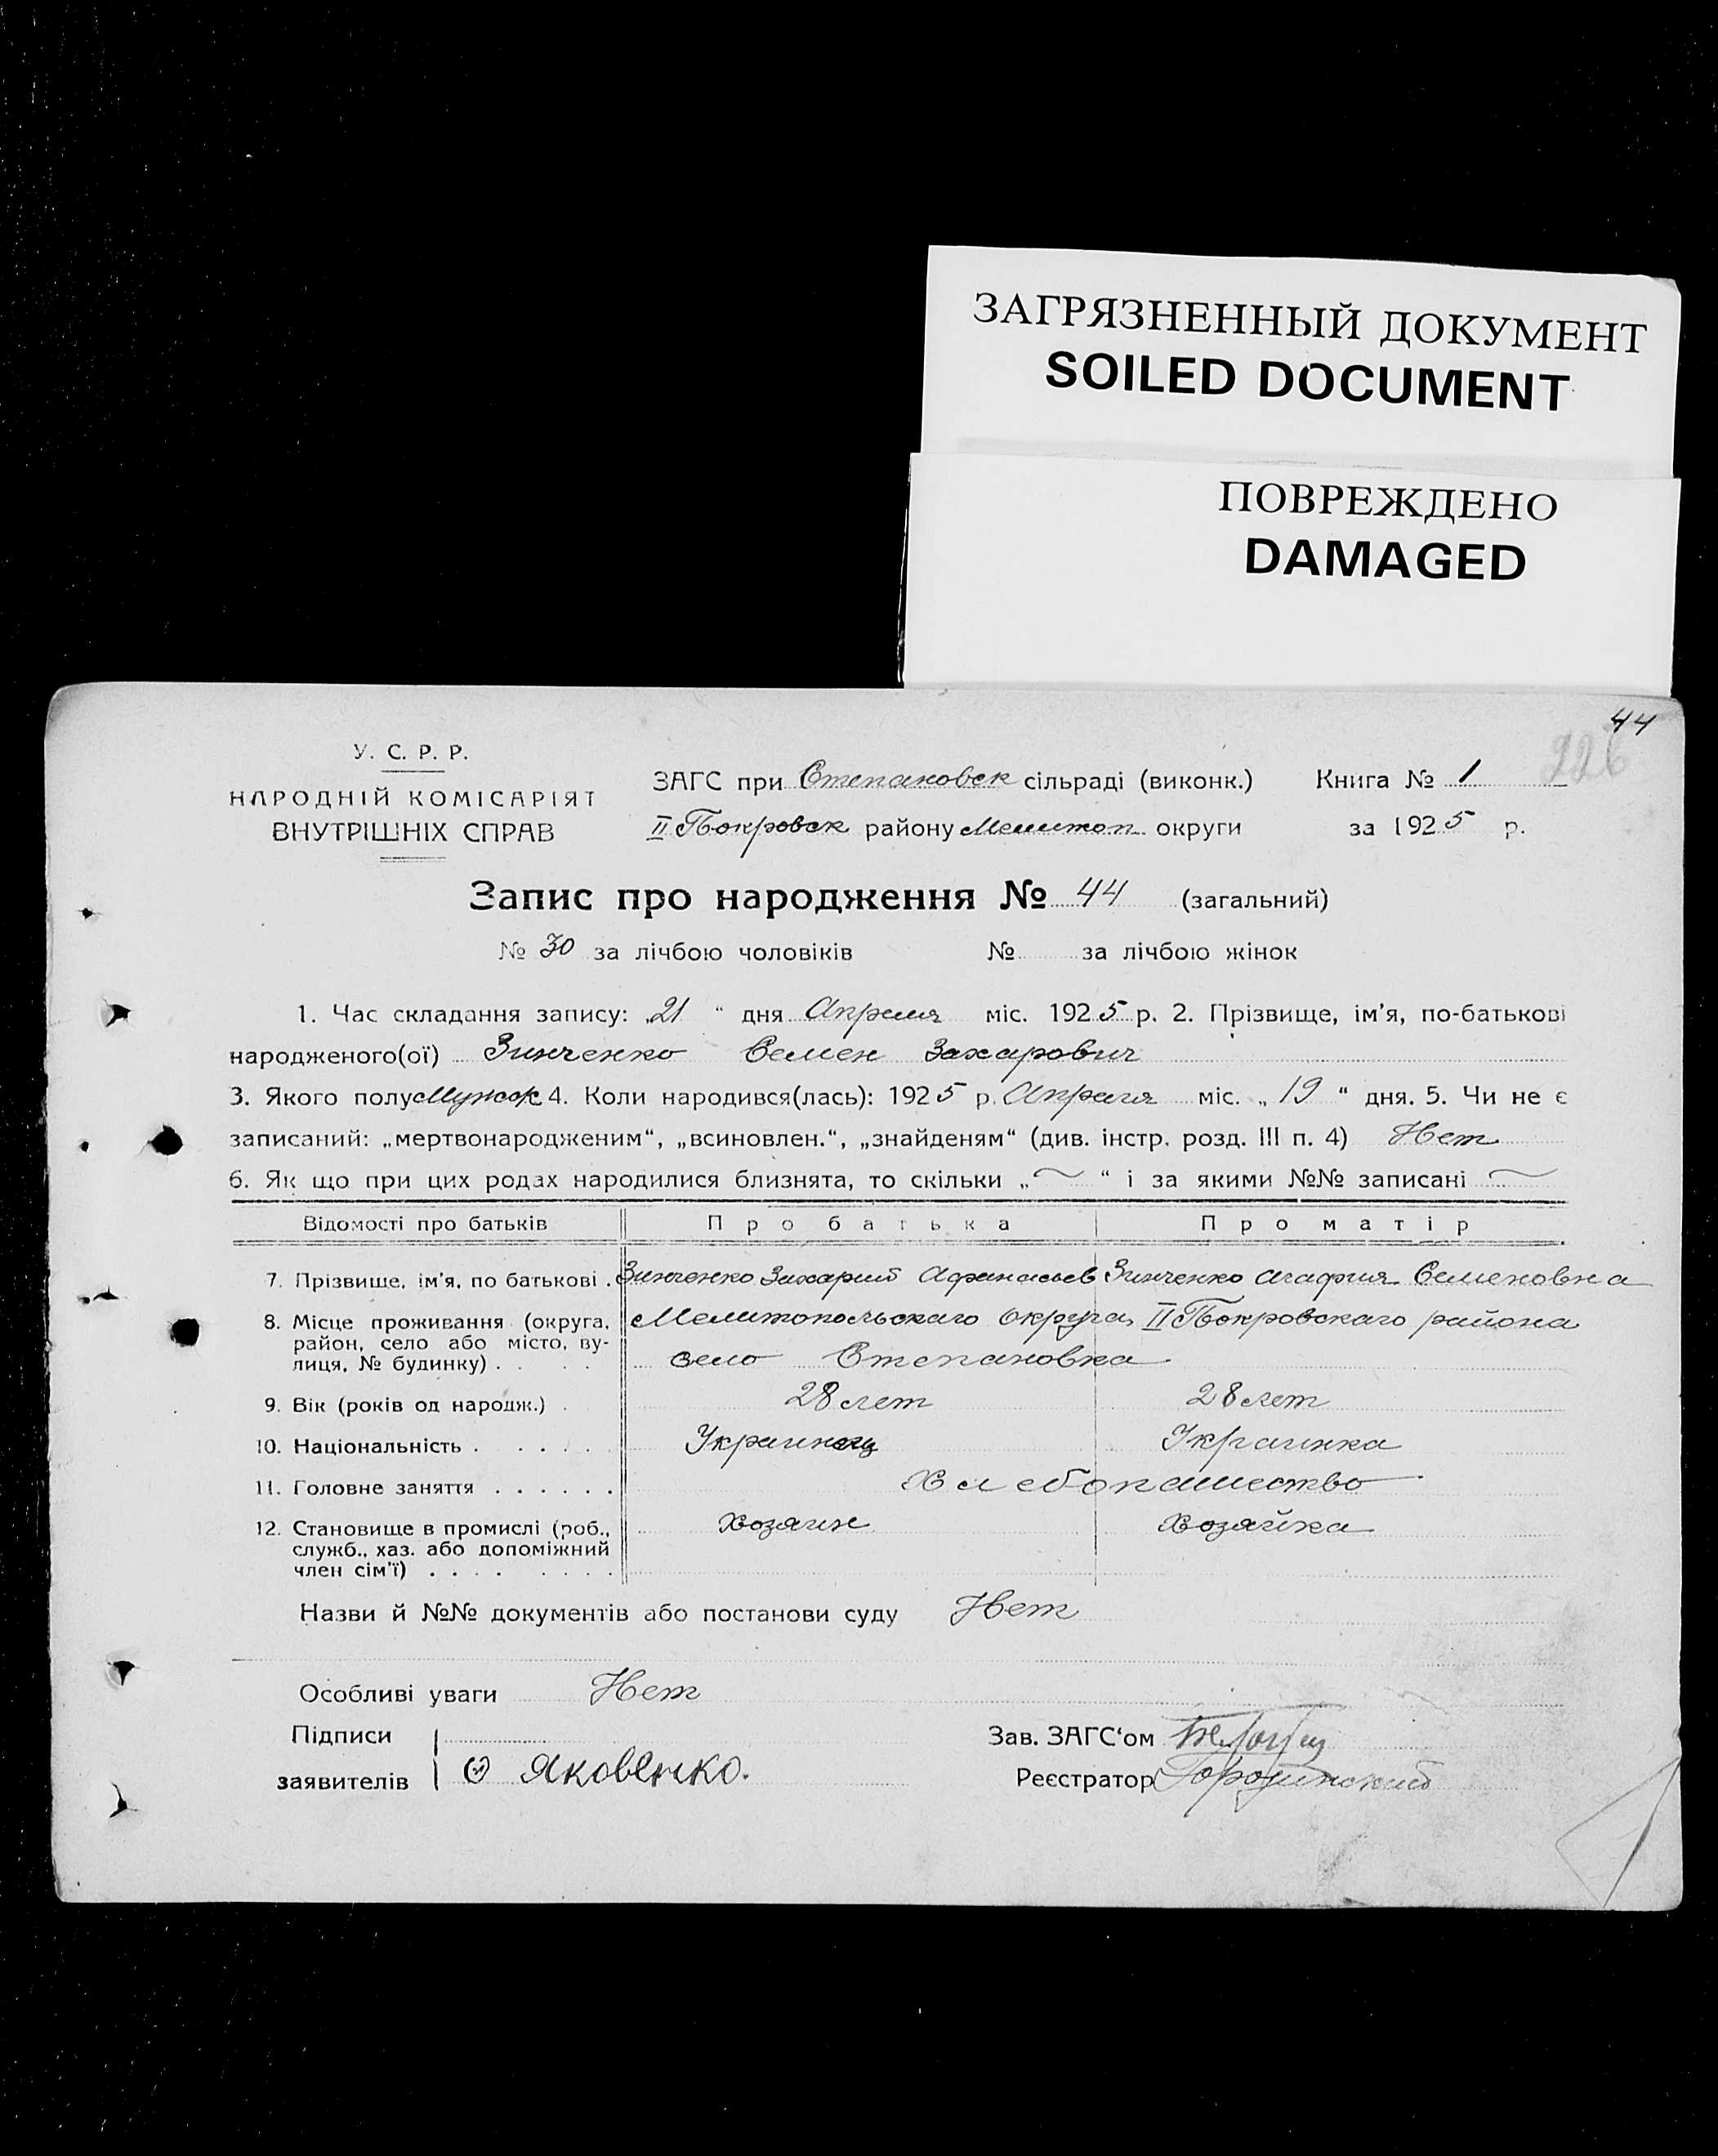 ЗАГРЯЗНЕННЫЙ ДОКУМЕНТ
SOILED DOCUMENT
ПОВРЕЖДЕНО
DAMAGED
44
226
У. С. Р. Р.
НАРОДНІЙ КОМІСАРІЯТ
ВНУТРІШНІХ СПРАВ
ЗАГС при Степановск сільраді (виконк.) Книга № 1
II Покровск району Мелитоп округи за 1925 р.
Запис про народження № 44 (загальний)
№ 30 за лічбою чоловіків № за лічбою жінок
1. Час складання запису: „21 “ дня Апреля міс. 1925 р. 2. Прізвище, ім’я, по-батькові
народженого(ої) Зинченко Семен Захарович
3. Якого полу Мужск 4. Коли народився(лась): 1925 р. Апреля міс. „ 19 “ дня. 5. Чи не є
записаний: „мертвонародженим“, „всиновлен.“, „знайденям“ (див. інстр. розд. III п. 4) Нет
6. Як що при цих родах народилися близнята, то скільки „ ~ “ і за якими №№ записані ~
Відомості про батьків Про батька Про матір
7. Прізвище, ім’я, по батькові . Зинченко Захарий Афанасьев Зинченко Агафия Семеновна
8. Місце проживання (округа, Мелитопольскаго округа, II Покровскаго района
район, село або місто, ву-
лиця, № будинку) . . . село Степановка
9. Вік (років од народж.) . 28 лет 28 лет
10. Національність . . . . . . Украинец Украинка
11. Головне заняття . . . . . . Хлебопашество
12. Становище в промислі (роб., Хозяин Хозяйка
служб., хаз. або допоміжний
член сім’ї) . . . . . . . .
Назви й №№ документів або постанови суду Нет
Особливі уваги Нет
Підписи Зав. ЗАГС‘ом
заявителів Яковенко. Реєстратор